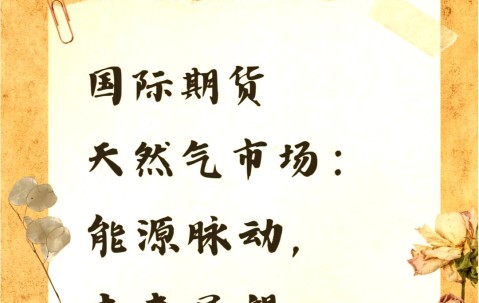 国际期货
天然气市场：
能源脉动，